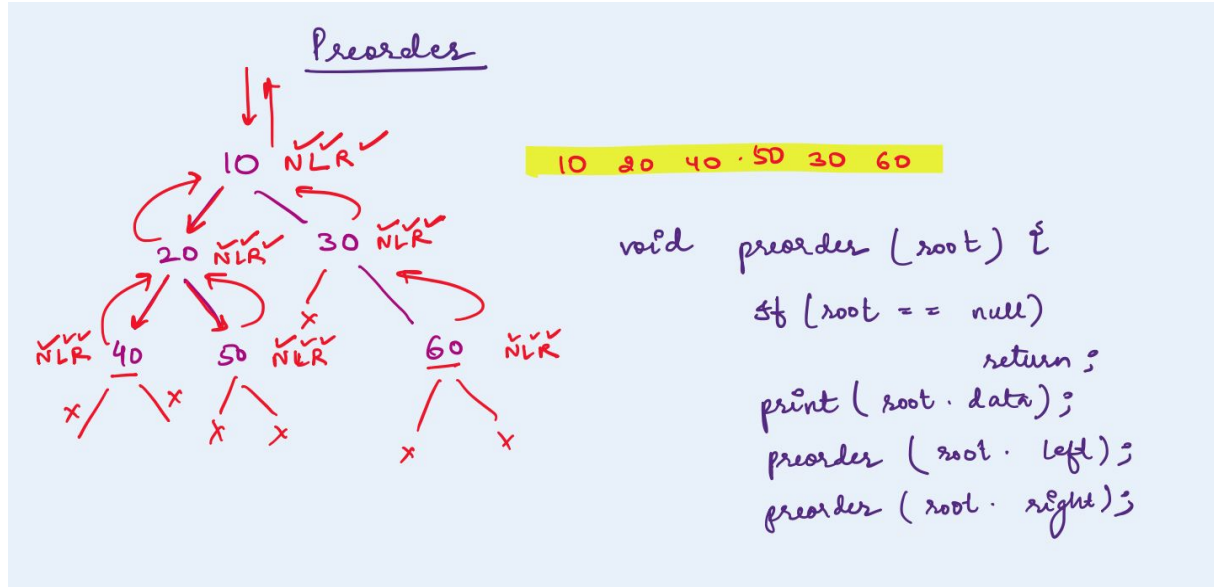 Preorder
10 NLR
10 20 40 . 50 30 60
20 NLR 30 NLR
NLR 40 50 NLR 60 NLR
x
x x x x x x
void preorder (root) {
If (root == null)
return ;
print ( root . data) ;
preorder ( root . left) ;
preorder ( root . right) ;